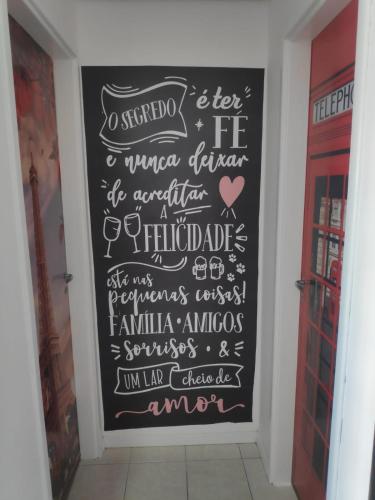 O SEGREDO é ter
FÉ
e nunca deixar
de acreditar
A
FELICIDADE
está nas
pequenas coisas!
FAMÍLIA • AMIGOS
sorrisos • &
UM LAR cheio de
amor
TELEPH